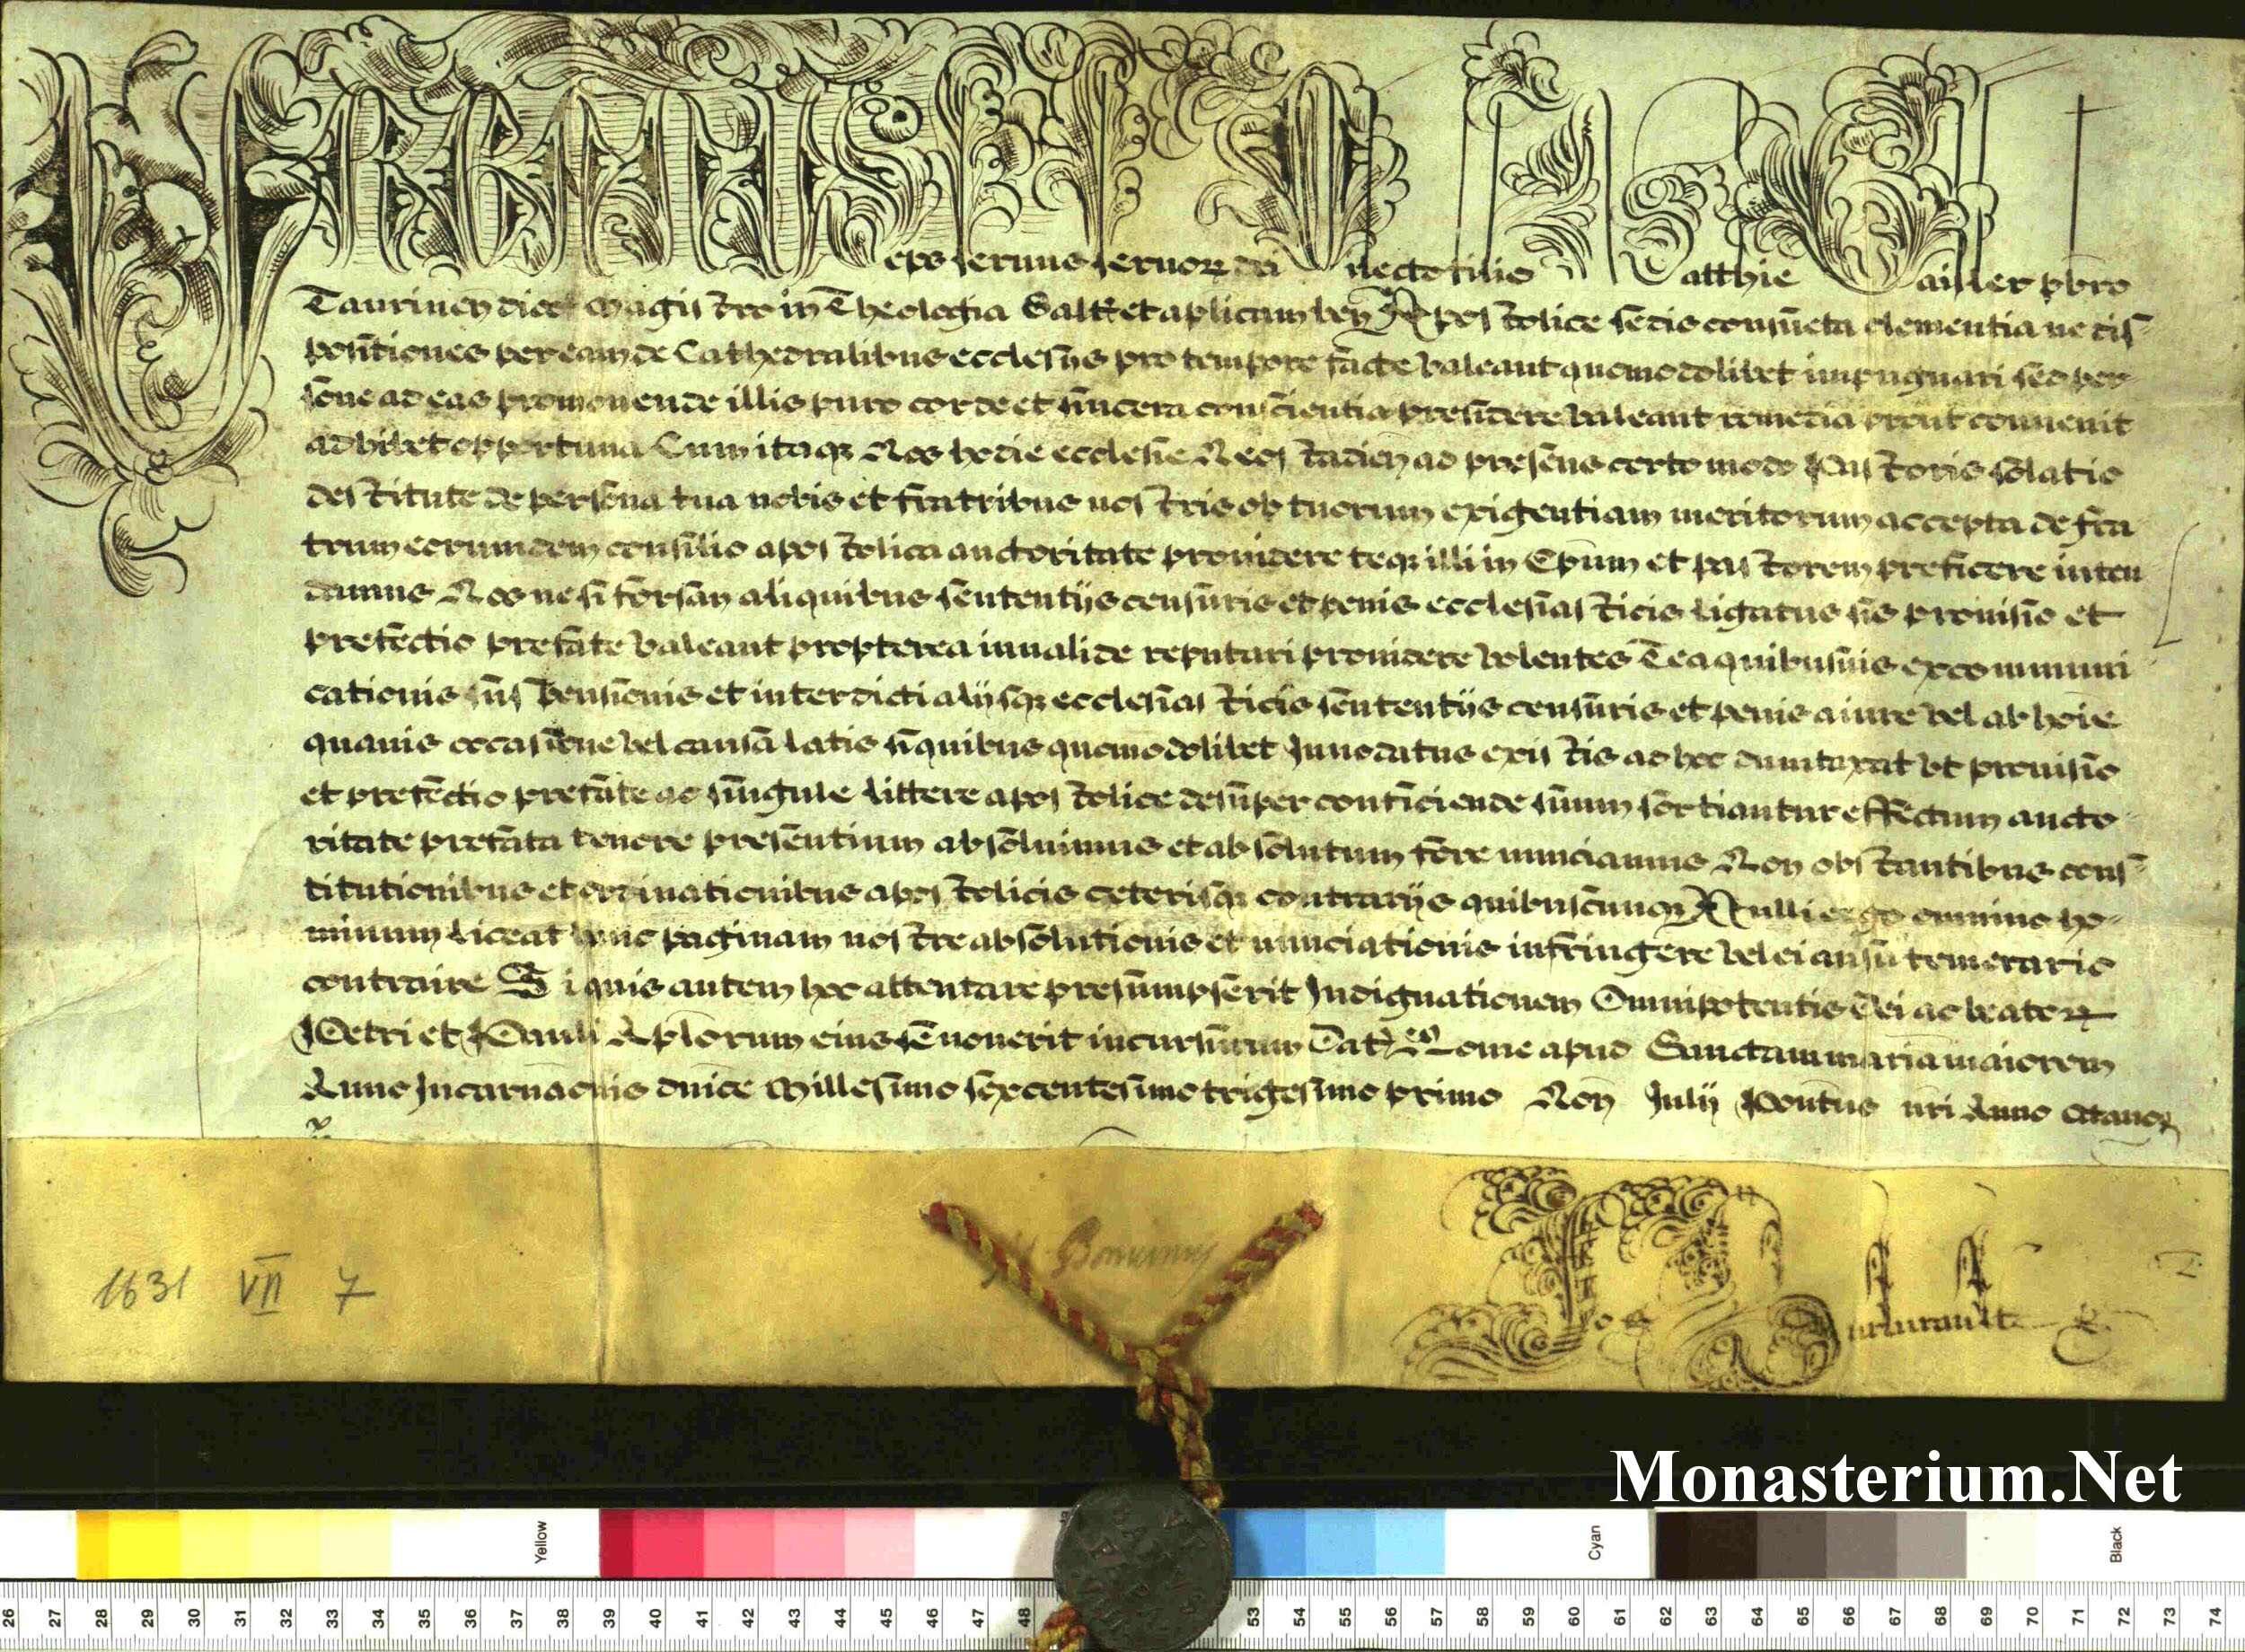 VRBANUS eps seruus seruoꝝ dei Dilecto filio Matthie Gaisser pbro
Taurinen dioc Magistro in Theologia Saltem et aplicam ben Apostolice sedis consueta clementia ne dis-
positiones per eam de Cathedralibus ecclesijs pro tempore facte valeant quomodolibet impugnari sed per-
sone ad eas promouende illis puro corde et sincera conscientia presidere valeant remedia prout conuenit
adhibet opportuna Cum itaqꝫ Nos hodie ecclesie Neostadien ad presens certo modo Pastoris solatio
destitute de persona tua nobis et fratribus nostris ob tuorum exigentiam meritorum accepta de fra
trum eorumdem consilio apostolica auctoritate prouidere teqꝫ illi in Epum et pastorem preficere inten
damus Nos ne si forsan aliquibus sententijs censuris et penis ecclesiasticis ligatus sis prouisio et
prefectio prefate valeant propterea inualide reputari prouidere volentes Te a quibusuis excommuni
cationis suspensionis et interdicti alijsqꝫ ecclesiasticis sententijs censuris et penis a iure vel ab hoie
quauis occasione vel causa latis si quibus quomodolibet Innodatus existis ad hoc dumtaxat vt prouisio
et prefectio prefate ac singule littere apostolice desuper conficiende suum sortiantur effectum aucto
ritate prefata tenore presentium absoluimus et absolutum fore nunciamus Non obstantibus cons-
titutionibus et ordinationibus apostolicis ceterisqꝫ contrarijs quibuscunqꝫ Nulli ergo omnino ho-
minum liceat hanc paginam nostre absolutionis et nunciationis infringere vel ei ausu temerario
contraire Si quis autem hoc attentare presumpserit Indignationem Omnipotentis Dei ac beatoꝝ
Petri et Pauli Aplorum eius se nouerit incursurum Dat Rome apud Sanctam mariam maiorem
Anno Incarnaonis dnice Millesimo sexcentesimo trigesimo primo Non Julij Pontus nri Anno octauo
1631 VII 7
Monasterium.Net
Yellow Cyan Black
26 27 28 29 30 31 32 33 34 35 36 37 38 39 40 41 42 43 44 45 46 47 48 53 54 55 56 57 58 59 60 61 62 63 64 65 66 67 68 69 70 71 72 73 74